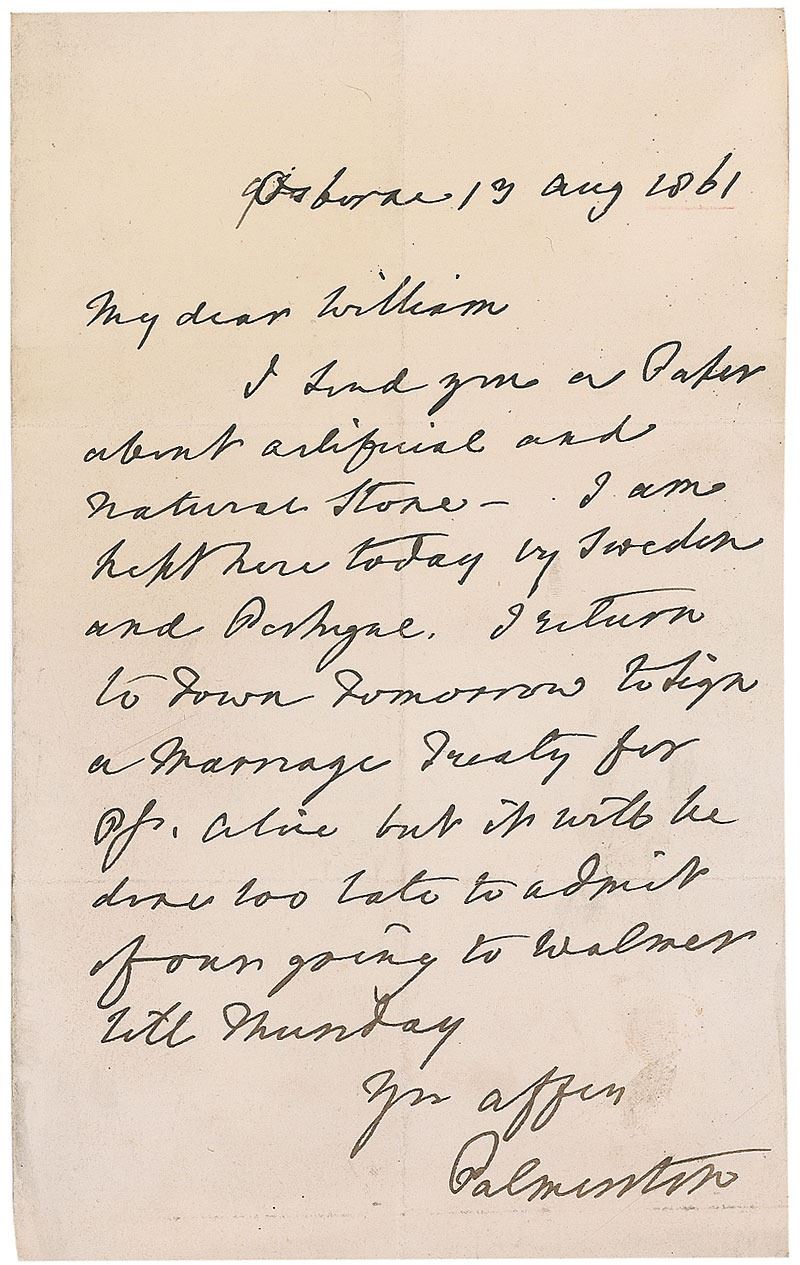 Osborne 13 Aug 1861
My dear William
I send you a Paper
about artificial and
natural Stone – I am
kept here today by Sweden
and Portugal. I return
to Town Tomorrow to sign
a Marriage Treaty for
Pss. Alice but it will be
done too late to admit
of our going to Walmer
till Thursday
Yrs affely
Palmerston